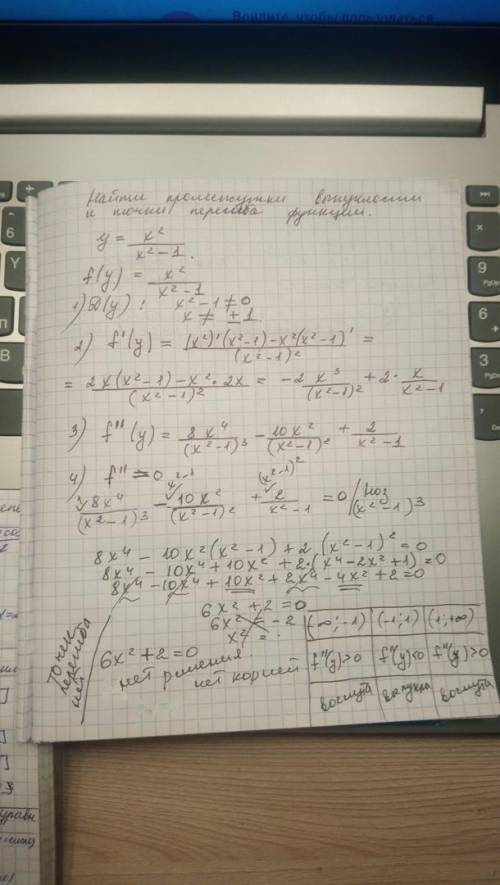 Войдите, чтобы пользоваться
Найти промежутки выпуклости
и точки перегиба функции.
y = x²/(x²-1).
f(y) = x²/(x²-1)
1) D(y): x²-1≠0
x ≠ ±1.
2) f'(y) = ((x²)'(x²-1)-x²(x²-1)')/(x²-1)² =
= (2x(x²-1)-x²·2x)/(x²-1)² = -2 x³/(x²-1)² + 2· x/(x²-1)
3) f''(y) = 8x⁴/(x²-1)³ - 10x²/(x²-1)² + 2/(x²-1)
4) f''=0
x²-1 (x²-1)²
8x⁴/(x²-1)³ - 10x²/(x²-1)² + 2/(x²-1) = 0 / НОЗ (x²-1)³
8x⁴ - 10x²(x²-1) + 2(x²-1)² = 0
8x⁴ - 10x⁴ + 10x² + 2·(x⁴-2x²+1)=0
8x⁴ - 10x⁴ + 10x² + 2x⁴ - 4x² + 2 = 0
6x²+2=0
6x² = -2
x² = .
6x²+2=0
нет решения
нет корней
Точек
перегиба
нет
(-∞;-1) (-1;1) (1;+∞)
f''(y)>0 f''(y)<0 f''(y)>0
вогнута выпукла вогнута
6
Y
9
PgUp
6
3
PgDn